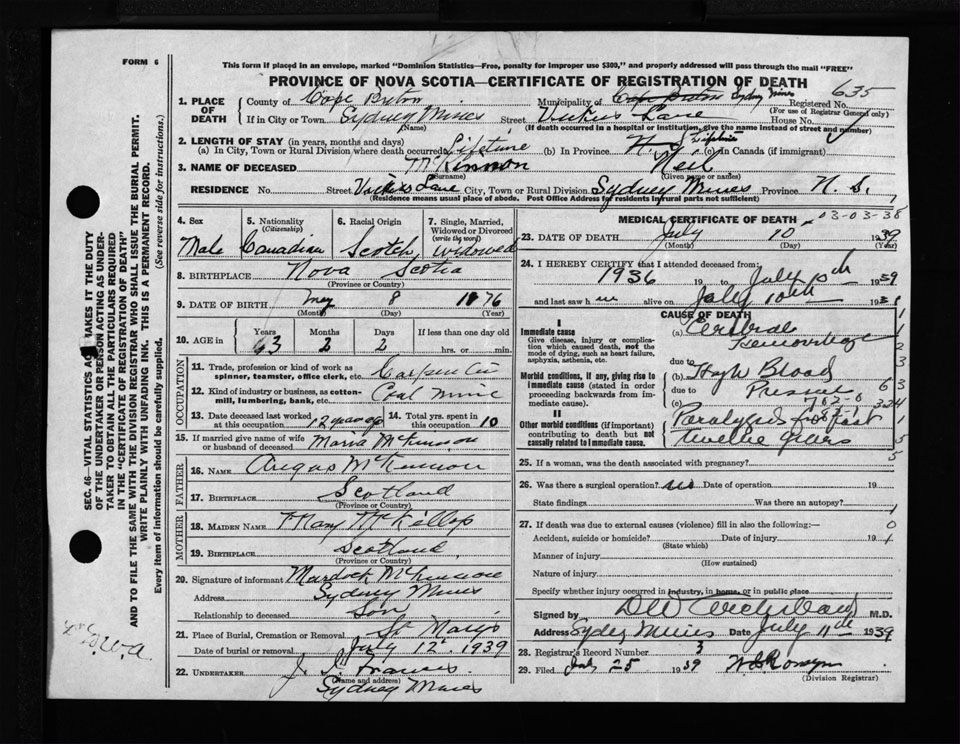 FORM 6
This form if placed in an envelope, marked "Dominion Statistics—Free, penalty for improper use $300," and properly addressed will pass through the mail "FREE"
PROVINCE OF NOVA SCOTIA—CERTIFICATE OF REGISTRATION OF DEATH
1. PLACE OF DEATH County of Cape Breton Municipality of Cape Breton Sydney Mines Registered No. 635
(For use of Registrar General only)
If in City or Town Sydney Mines Street Lane House No.
(Name) (If death occurred in a hospital or institution, give the name instead of street and number)
2. LENGTH OF STAY (in years, months and days)
(a) In City, Town or Rural Division where death occurred Lifetime (b) In Province Lifetime (c) in Canada (if immigrant)
3. NAME OF DECEASED McKinnon Neil
(Surname) (Given name or names)
RESIDENCE No. Street Lane City, Town or Rural Division Sydney Mines Province N. S.
(Residence means usual place of abode. Post Office Address for residents in rural parts not sufficient)
4. Sex Male
5. Nationality (Citizenship) Canadian
6. Racial Origin Scotch
7. Single, Married, Widowed or Divorced (write the word) Widowed
8. BIRTHPLACE Nova Scotia
(Province or Country)
9. DATE OF BIRTH May 8 1876
(Month) (Day) (Year)
10. AGE in Years 63 Months 2 Days 2 If less than one day old hrs. or min.
OCCUPATION
11. Trade, profession or kind of work as spinner, teamster, office clerk, etc. Carpenter
12. Kind of industry or business, as cotton-mill, lumbering, bank, etc. Coal Mine
13. Date deceased last worked at this occupation 12 years ago
14. Total yrs. spent in this occupation 10
15. If married give name of wife or husband of deceased McKinnon
FATHER
16. NAME Angus McKinnon
17. BIRTHPLACE Scotland
(Province or Country)
MOTHER
18. MAIDEN NAME Mary McKellop
19. BIRTHPLACE Scotland
(Province or Country)
20. Signature of informant Murdock McKinnon
Address Sydney Mines
Relationship to deceased Son
21. Place of Burial, Cremation or Removal St Marys
Date of burial or removal July 12. 1939
22. UNDERTAKER J. Francis
(Name and address)
Sydney Mines
MEDICAL CERTIFICATE OF DEATH
03-03-38
23. DATE OF DEATH July 10 1939
(Month) (Day) (Year)
24. I HEREBY CERTIFY that I attended deceased from:
1936 19 to July 10th 1939
and last saw him alive on July 10th 193
CAUSE OF DEATH
I
Immediate cause
Give disease, injury or complication which caused death, not the mode of dying, such as heart failure, asphyxia, asthenia, etc.
(a) Cerebral Hemorrhage
due to
Morbid conditions, if any, giving rise to immediate cause (stated in order proceeding backwards from immediate cause).
(b) High Blood
due to
(c) Pressure
II
Other morbid conditions (if important) contributing to death but not causally related to immediate cause.
Paralyzed for past twelve years
25. If a woman, was the death associated with pregnancy?
26. Was there a surgical operation? no Date of operation 19
State findings Was there an autopsy?
27. If death was due to external causes (violence) fill in also the following:—
Accident, suicide or homicide? Date of injury 19
(State which)
Manner of injury
(How sustained)
Nature of injury
Specify whether injury occurred in industry, in home, or in public place
Signed by M.D.
Address Sydney Mines Date July 11th 1939
28. Registrar's Record Number 3
29. Filed July 25 1939
(Division Registrar)
SEC. 46—VITAL STATISTICS ACT MAKES IT THE DUTY
OF THE UNDERTAKER OR PERSON ACTING AS UNDER-
TAKER TO OBTAIN ALL THE PARTICULARS REQUIRED
IN THE "CERTIFICATE OF REGISTRATION OF DEATH"
AND TO FILE THE SAME WITH THE DIVISION REGISTRAR WHO SHALL ISSUE THE BURIAL PERMIT.
WRITE PLAINLY WITH UNFADING INK. THIS IS A PERMANENT RECORD.
Every item of information should be carefully supplied. (See reverse side for instructions.)